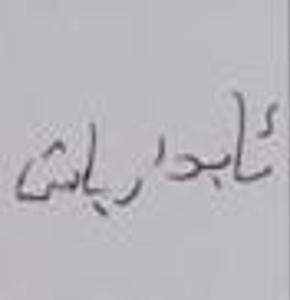 ئابدارباش